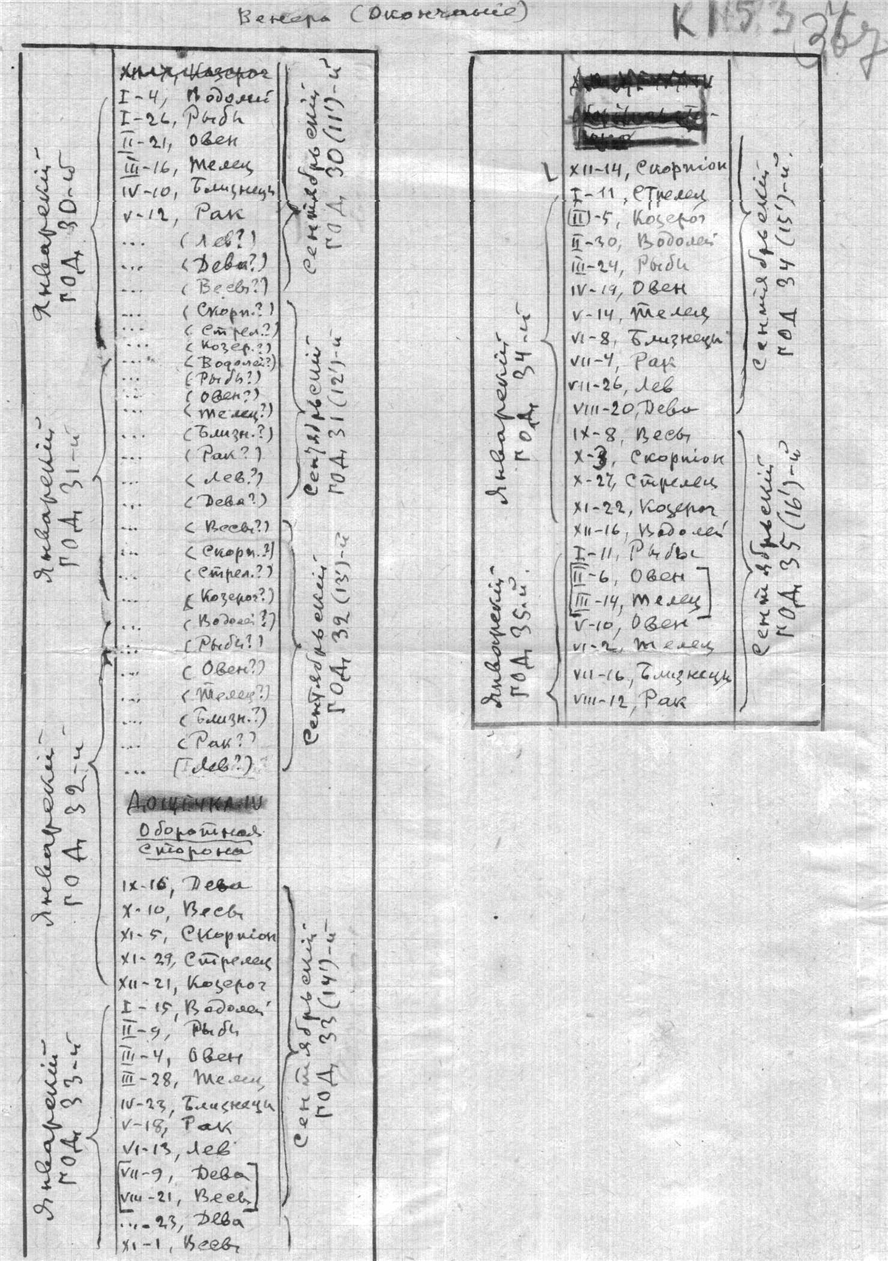 Венера (Окончаніе)
КН53
I-4, Водолей
I-26, Рыбы
II-21, Овен
III-16, Телец
IV-10, Близнецы
V-12, Рак
... (Лев?)
... (Дева?)
... (Весы?)
... (Скорп.?)
... (Стрел.?)
... (Козер.?)
... (Водолей?)
... (Рыбы?)
... (Овен?)
... (Телец?)
... (Близн.?)
... (Рак?)
... (Лев?)
... (Дева?)
... (Весы?)
... (Скорп.?)
... (Стрел.?)
... (Козерог?)
... (Водолей?)
... (Рыбы?)
... (Овен?)
... (Телец?)
... (Близн.?)
... (Рак??)
... (Лев?)
Дощечка IV
Оборотная
сторона
IX-16, Дева
X-10, Весы
XI-5, Скорпіон
XI-29, Стрелец
XII-21, Козерог
I-15, Водолей
II-9, Рыбы
III-4, Овен
III-28, Телец
IV-23, Близнецы
V-18, Рак
VI-13, Лев
VII-9, Дева
VIII-21, Весы
...-23, Дева
XI-1, Весы
Январскій
год 30-й
Январскій
год 31-й
Январскій
год 32-й
Январскій
год 33-й
Сентябрьскій
год 30 (11')-й
Сентябрьскій
год 31 (12')-й
Сентябрьскій
год 32 (13')-й
Сентябрьскій
год 33 (14')-й
XII-14, Скорпіон
I-11, Стрелец
II-5, Козерог
II-30, Водолей
III-24, Рыбы
IV-19, Овен
V-14, Телец
VI-8, Близнецы
VII-4, Рак
VII-26, Лев
VIII-20, Дева
IX-8, Весы
X-3, Скорпіон
X-27, Стрелец
XI-22, Козерог
XII-16, Водолей
I-11, Рыбы
II-6, Овен
III-14, Телец
V-10, Овен
VI-2, Телец
VII-16, Близнецы
VIII-12, Рак
Январскій
год 34-й
Январскій
год 35-й.
Сентябрьскій
год 34 (15')-й.
Сентябрьскій
год 35 (16')-й